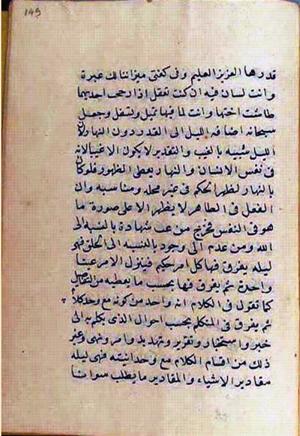 149
قدرها العزيز العليم وفي كفتي ميزانا لك عبرة
وانت لسان فيه ان كنت تعقل اذا رجحت احديهما
طاشت اختها وانت لما فيها تميل وتسفل وجعل
سبحانه اضافة الليل الى القدر دون النهار لان
الليل شبيه بالغيب والتقدير لا يكون الا غيبا لانه
في نفس الانسان والنهار يعطى الظهور فلو كان
بالنهار لظهر الحكم في غير محله ومناسبه وان
الفعل في الظاهر لا يظهر الا على صورة ما
هو في النفس فيخرج من غيب شهادة بالنسبة الى
الله ومن عدم الى وجود بالنسبة الى الخلق فهي
ليلة يفرق فيها كل امر حكيم فينزل الامر عينا
واحدة ثم يفرق فيها بحسب ما يعطيه من التفاصيل
كما تقول في الكلام انه واحد من كونه مع وحدة كلاما
ثم يفرق في المتكلم بحسب احوال الذي يكلم به الى
خبر واستخبار وتقرير وتهديد وامر ونهي وغير
ذلك من اقسام الكلام مع وحدانيته فهي ليلة
مقادير الاشياء والمقادير ما يطلب سوانا